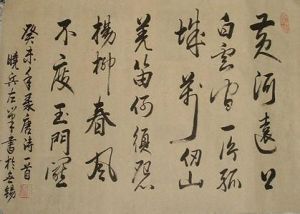 黄河遠上
白雲間一片孤
城萬仞山
羌笛何須怨
楊柳春風
不度玉門關
癸未年录唐诗一首
書於無錫